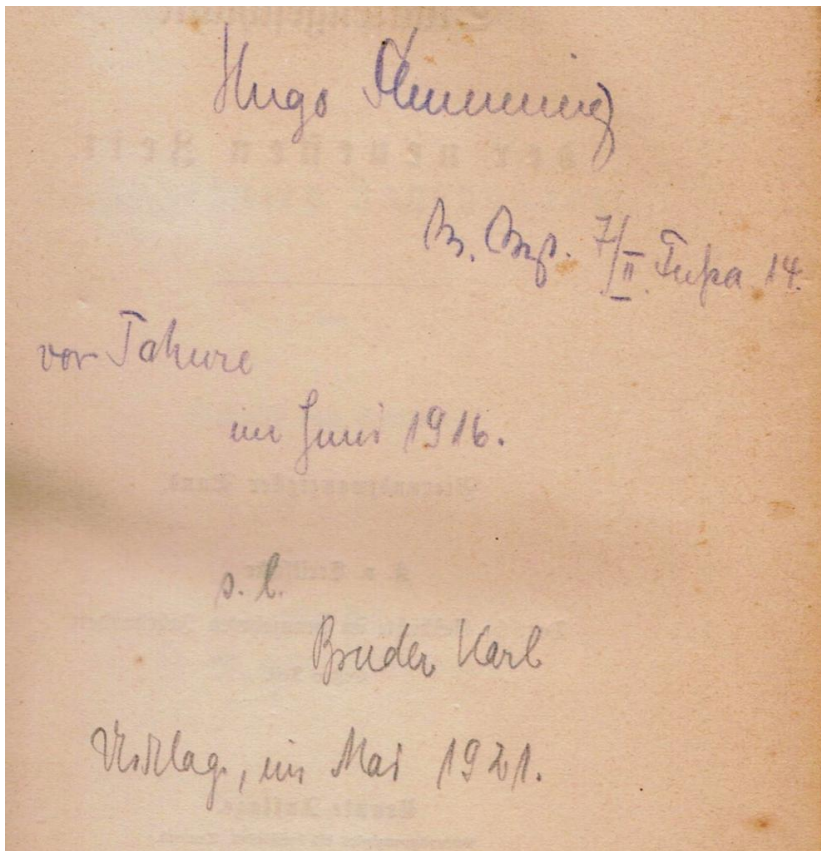 Hugo Flemming
7/II. Fußa 14.
vor Tahure
im Juni 1916.
s. l.
Bruder Karl
im Mai 1921.